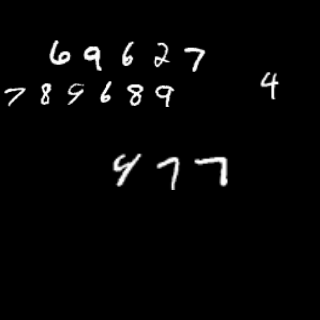 69627
789689
4
477